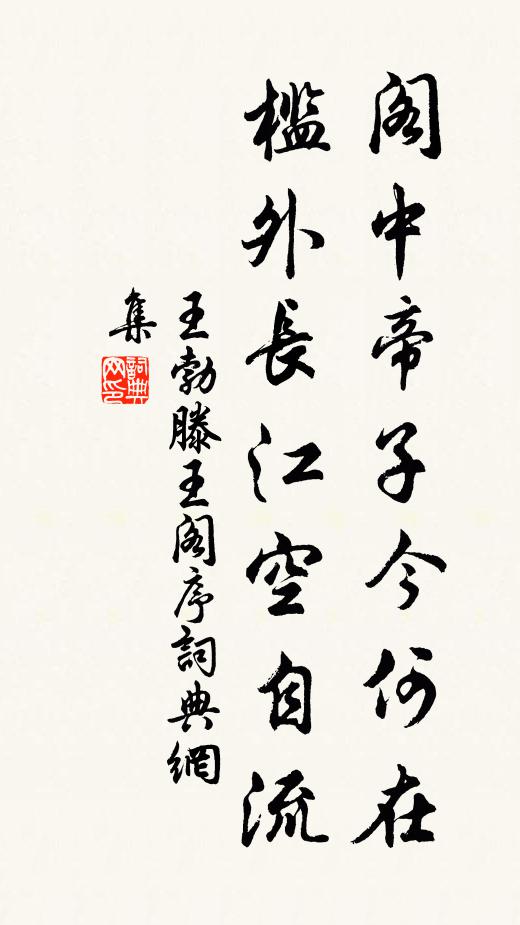 閣中帝子今何在
檻外長江空自流
王勃滕王閣序詞典網
集
詞典
网印